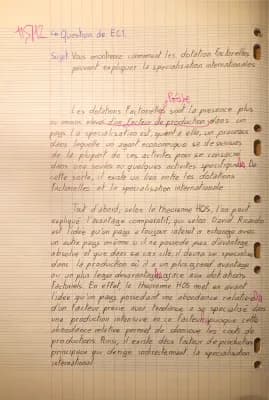 1,5/2 → Question de EC1.
Sujet Vous montrerez comment les dotation factorielles
peuvent expliquer la spécialisation internationale.
Les dotations factorielles sont la présence plus
ou moins élevé d'un facteur de production dans un
pays. La spécialisation est, quant à elle, un processus
dans laquelle un agent économique se désengage
de la plupart de ces activités pour se consacrer
dans une seules ou quelques activités spécifiques. De
cette sorte, il existe un lien entre les dotations
factorielles et la spécialisation internationale.
Tout d'abord, selon le théorème HOS, l'on peut
expliquer l'avantage comparatif, qui selon David Ricardo
est l'idée qu'un pays a toujours intérêt à échanger avec
un autre pays même si il ne possède pas d'avantage
absolue et que dès ce cas elle devra se spécialiser
dans la production où il a un plus grand avantage
ou un plus léger désavantage, grâce aux dotations
factoriels. En effet, le théorème HOS met en avant
l'idée qu'un pays possédant une abondance relative
d'un facteur précis aura tendance a se spécialisé dans
une production intensive en ce facteur, puisque cette
abondance relative permet de diminuer les coûts de
productions. Ainsi, il existe deux facteur de production
principaux qui dirige indirectement la spécialisation
international.